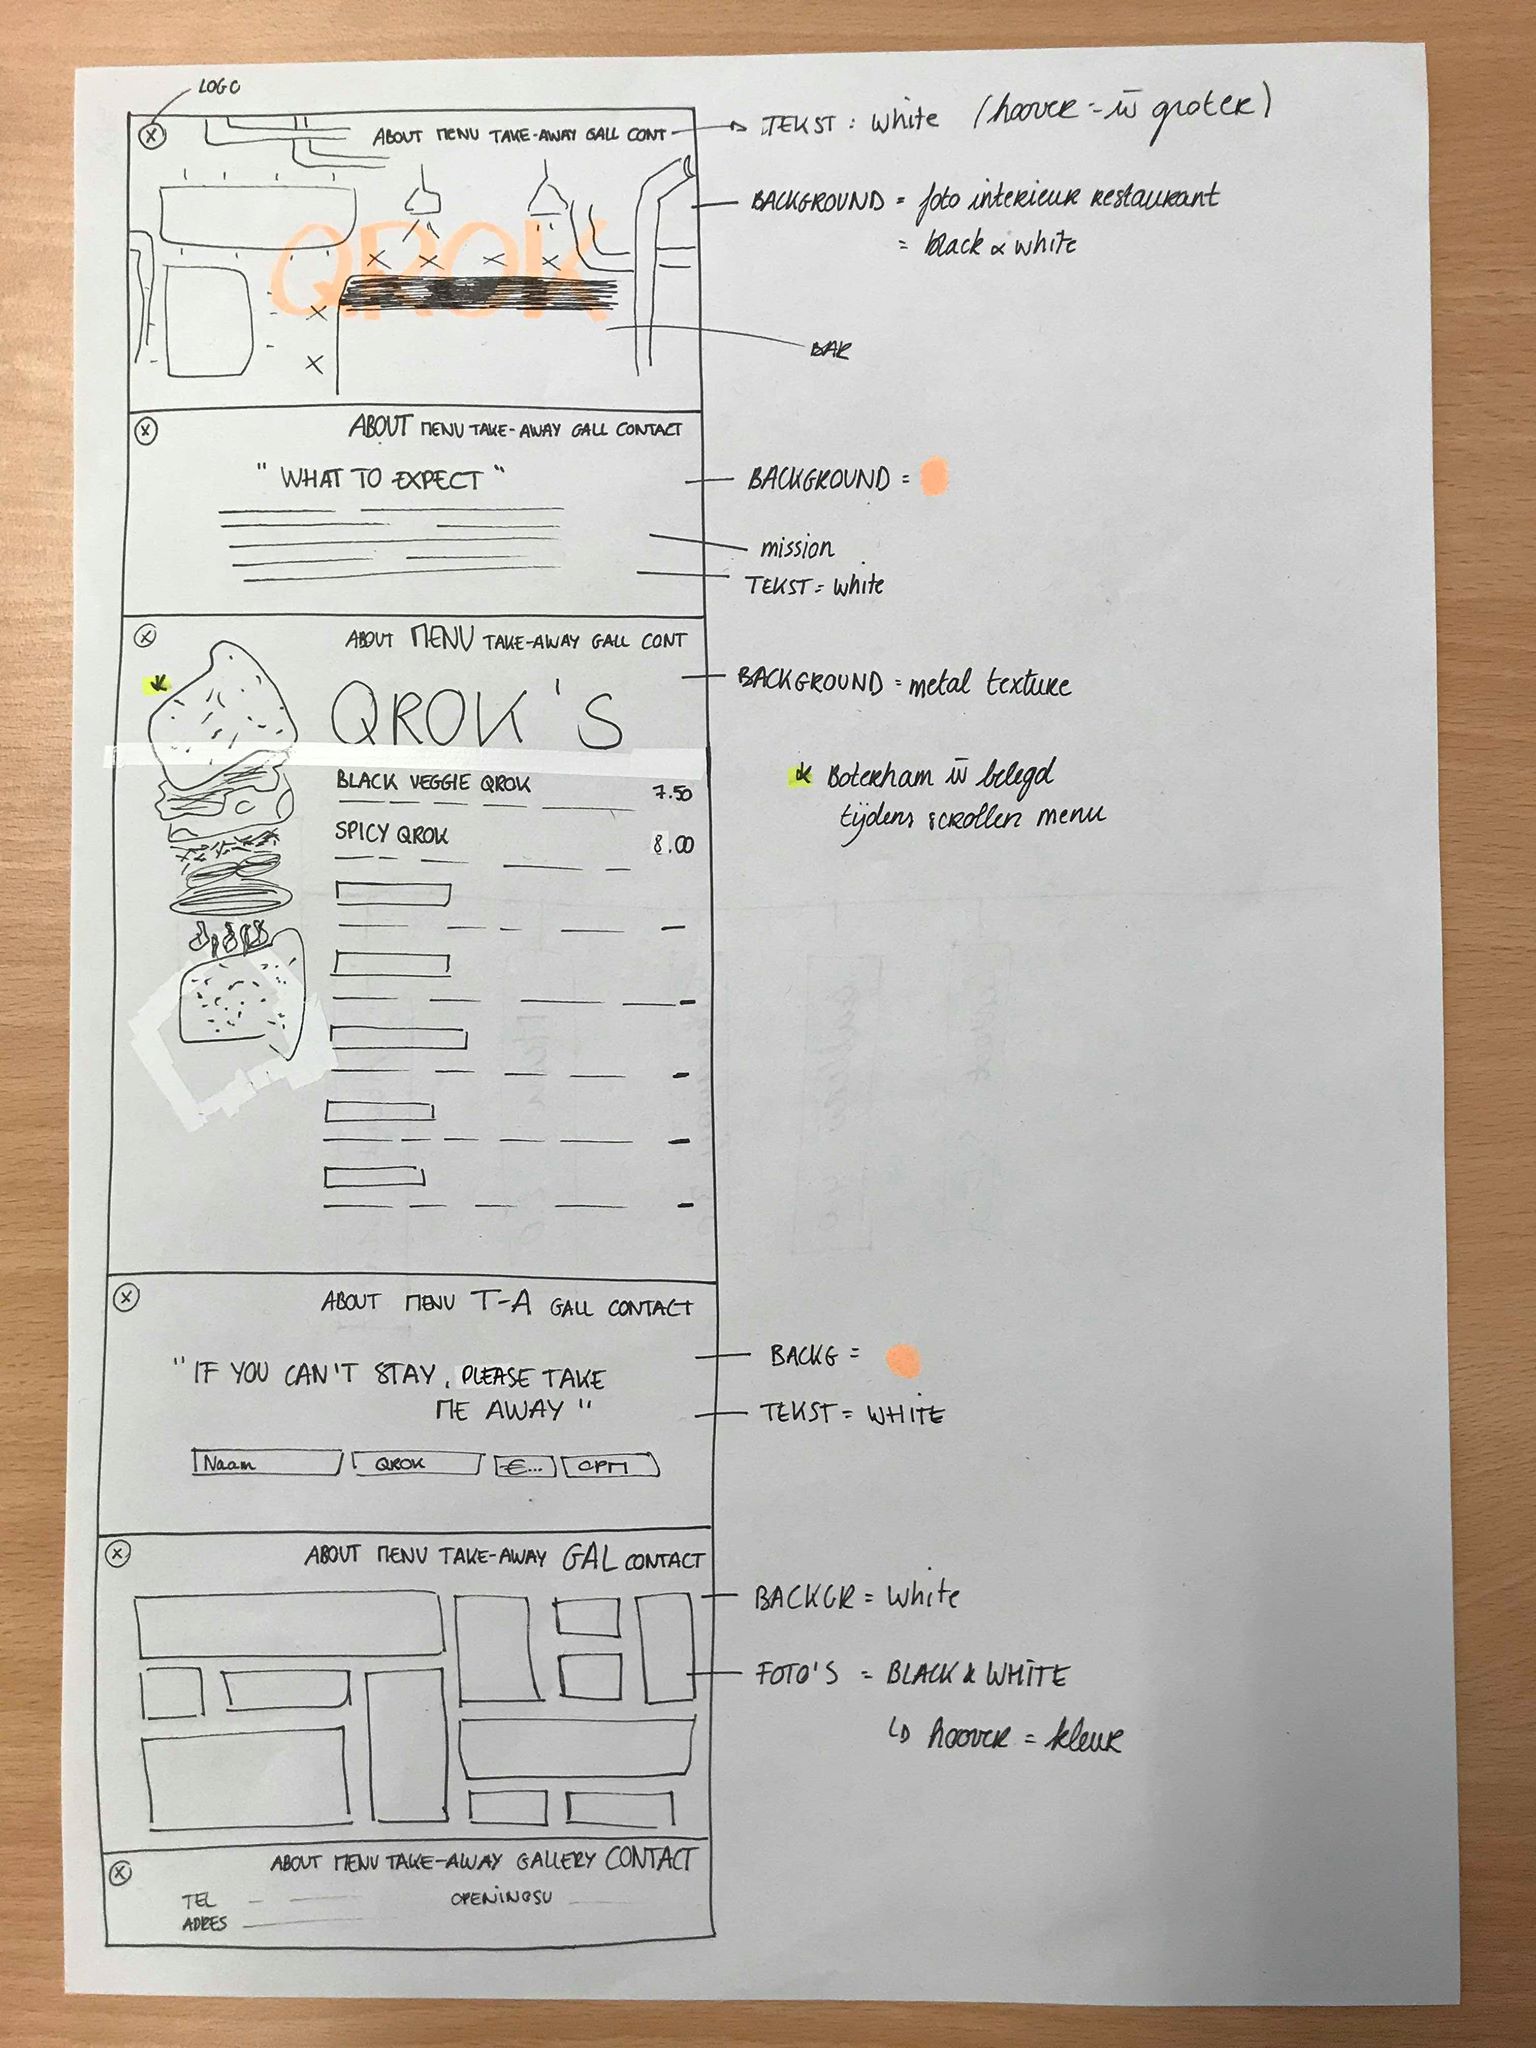 LOGO
ABOUT MENU TAKE-AWAY GALL CONT
TEKST : white (hoover = w̄ groter)
BACKGROUND = foto interieur restaurant
= black & white
QROK
BAR
ABOUT MENU TAKE-AWAY GALL CONTACT
" WHAT TO EXPECT "
BACKGROUND =
mission
TEKST = white
ABOUT MENU TAKE-AWAY GALL CONT
BACKGROUND = metal texture
QROK'S
BLACK VEGGIE QROK 7.50
SPICY QROK 8.00
Boterham w̄ belegd
tijdens scrollen menu
ABOUT MENU T-A GALL CONTACT
BACKG =
"IF YOU CAN'T STAY, PLEASE TAKE
ME AWAY"
TEKST = WHITE
Naam QROK €...
ABOUT MENU TAKE-AWAY GAL CONTACT
BACKGR = white
FOTO'S = BLACK & WHITE
↳ hoover = kleur
ABOUT MENU TAKE-AWAY GALLERY CONTACT
TEL OPENINGSU
ADRES